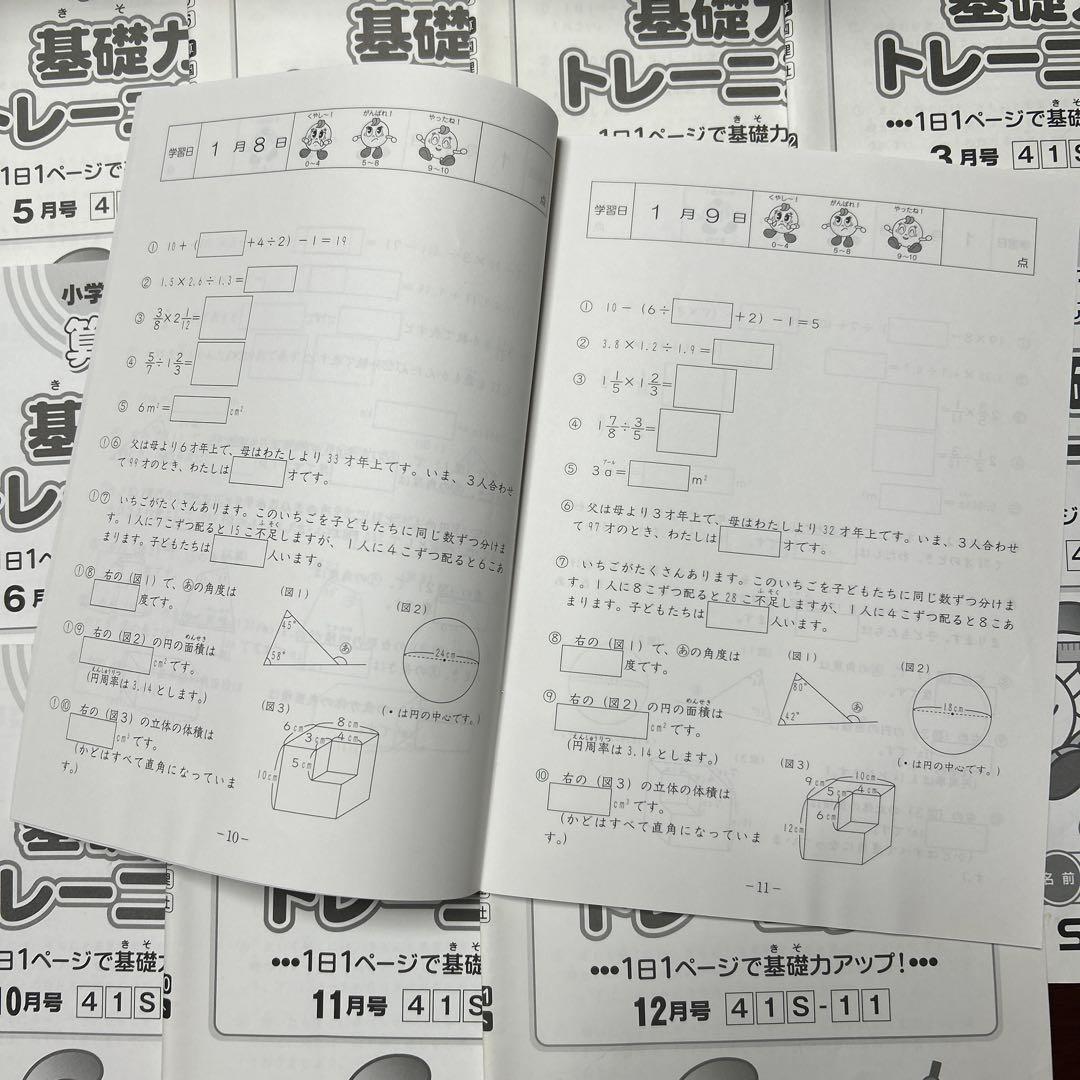 き そ
基礎力
トレーニ
1日1ページで基
5月号 4
基礎
トレーニ
•••1日1ページで基礎力
き そ
基礎
トレーニ
•••1日1ページで基礎力
3月号 41S
学習日 1月8日
くやし〜! がんばれ! やったね!
0~4 5~8 9~10
点
① 10+( +4÷2)-1=19
② 1.5×2.6÷1.3=
③ 3/8×2 1/12=
④ 5/7÷1 2/3=
⑤ 6m²= cm²
①⑥ 父は母より6才年上で、母はわたしより33才年上です。いま、3人合わせ
て99才のとき、わたしは 才です。
①⑦ いちごがたくさんあります。このいちごを子どもたちに同じ数ずつ分けま
す。1人に7こずつ配ると15こ不足しますが、1人に4こずつ配ると6こあ
まります。子どもたちは 人います。
①⑧ 右の(図1)で、あの角度は
度です。
①⑨ 右の(図2)の円の面積は
cm²です。
(円周率は3.14とします。)
①⑩ 右の(図3)の立体の体積は
cm³です。
(かどはすべて直角になっていま
す。)
(図1)
45°
58°
あ
(図2)
24cm
(・は円の中心です。)
(図3)
8cm
6cm
3cm 4cm
5cm
10cm
-10-
学習日 1月9日
くやし〜! がんばれ! やったね!
0~4 5~8 9~10
点
① 10-(6÷ +2)-1=5
② 3.8×1.2÷1.9=
③ 1 1/5×1 2/3=
④ 1 7/8÷3/5=
⑤ 3a= m²
アール
⑥ 父は母より3才年上で、母はわたしより32才年上です。いま、3人合わせ
て97才のとき、わたしは 才です。
⑦ いちごがたくさんあります。このいちごを子どもたちに同じ数ずつ分けま
す。1人に8こずつ配ると28こ不足しますが、1人に4こずつ配ると8こあ
まります。子どもたちは 人います。
⑧ 右の(図1)で、あの角度は
度です。
⑨ 右の(図2)の円の面積は
cm²です。
(円周率は3.14とします。)
⑩ 右の(図3)の立体の体積は
cm³です。
(かどはすべて直角になっていま
す。)
(図1)
80°
42°
あ
(図2)
18cm
(・は円の中心です。)
(図3)
10cm
9cm
5cm 4cm
6cm
12cm
-11-
小学
算
き
基
トレー
1日1ペー
6月
名前
トレーニ
き そ
1日1ページで基礎力
10月号 41S
トレーニ
き そ
•••1日1ページで基礎
11月号 41S
き そ
•••1日1ページで基礎力アップ!•••
12月号 41S-11